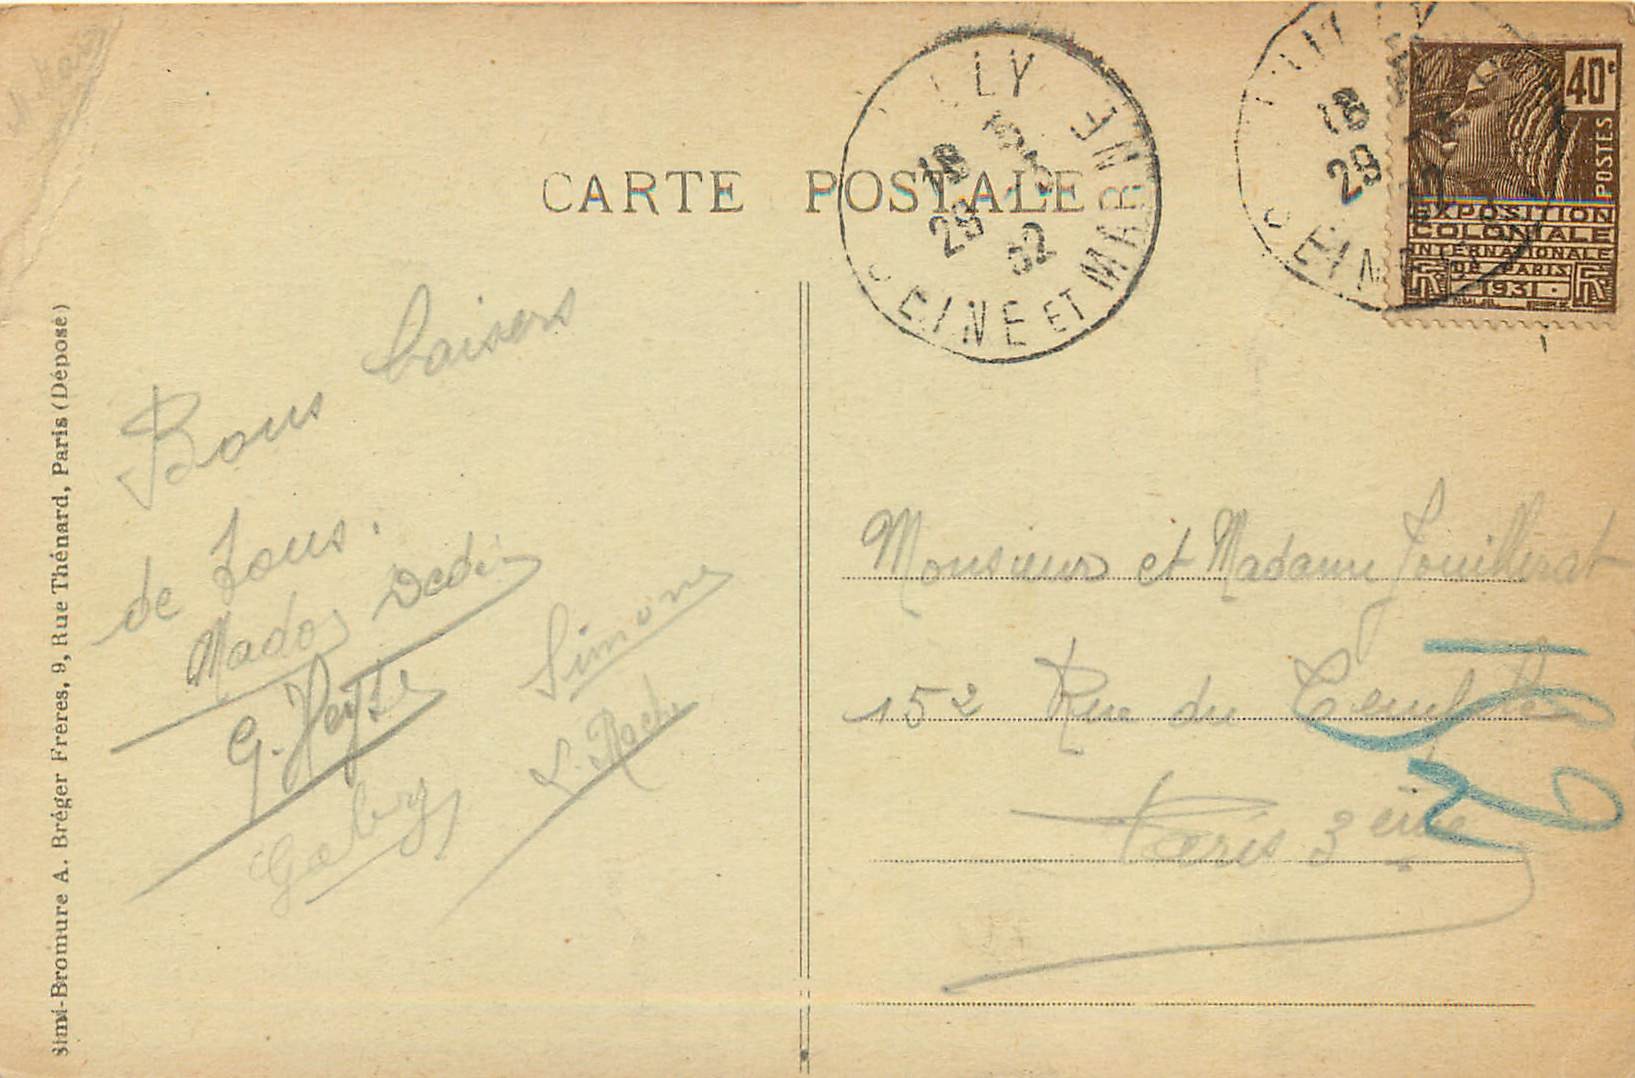 CARTE POSTALE
SEINE ET MARNE
18
29
32
18
29
40c
POSTES
EXPOSITION
COLONIALE
INTERNATIONALE
DE PARIS
1931
RF RF
Bons baisers
de tous.
Mados Dedée
G. Heyse Simone
Gaby L. Roch
Monsieur et Madame Jouillerat
152 Rue du Temple
Paris 3ème
Simi-Bromure A. Bréger Frères, 9, Rue Thénard, Paris (Déposé)